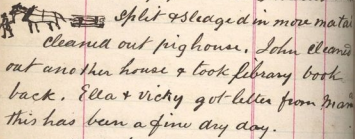 split & sleaged in more matai
cleaned out pighouse. John cleaned
out another house & took library book
back. Ella & Vicky got letter from Mama
this has been a fine dry day.